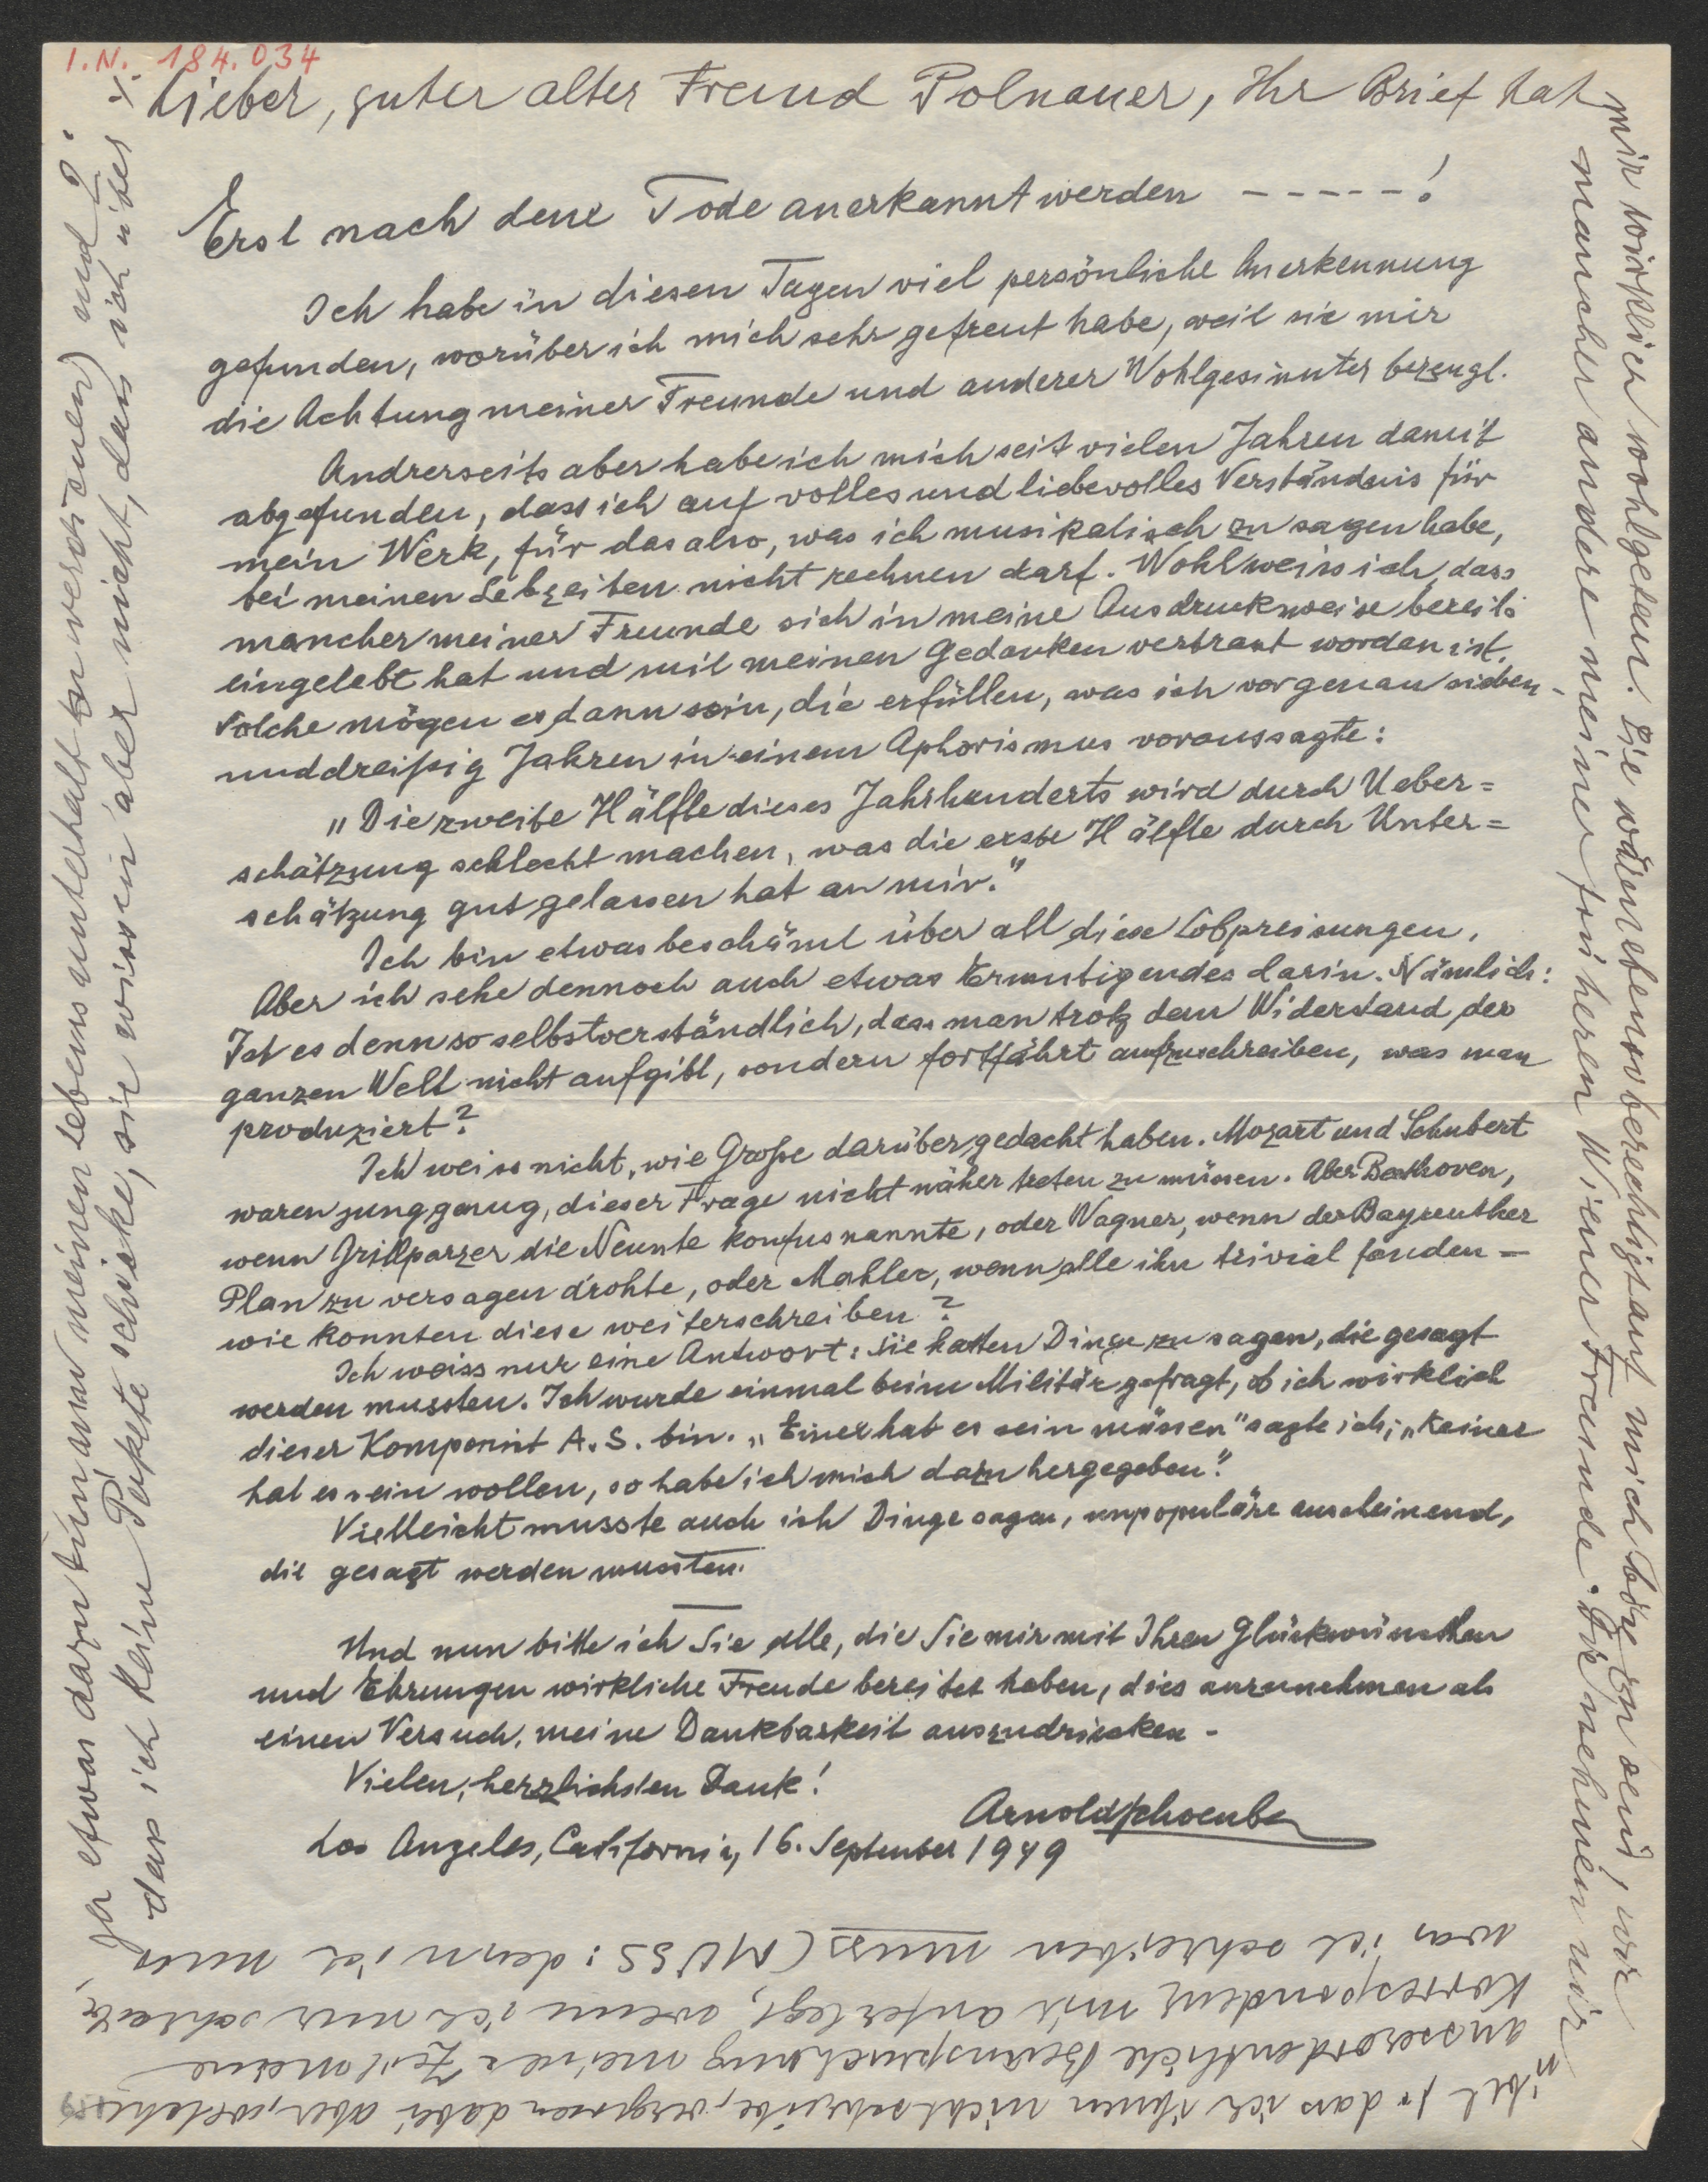 I.N. 184.034
Lieber, guter alter Freund Polnauer, Ihr Brief hat
mir wirklich wohlgetan. Sie wären ebenso berechtigt auf mich böse zu sein, wie
mancher andere meiner früheren Wiener Freunde. Die nehmen mir
übel 1. dass ich ihnen nicht schreibe, vergessen dabei aber, welche
ausserordentliche Beanspruchung meiner Zeit meine
Korrespondenz mir auferlegt, wenn ich nur schreibe,
was ich schreiben muss (MUSS: denn ich muss
ja etwas dazu tun um meinen Lebensunterhalt zu verdienen) und 2.
dass ich keine Pakete schicke, sie wissen aber nicht, dass ich über ./.
Erst nach dem Tode anerkannt werden -----!
Ich habe in diesen Tagen viel persönliche Anerkennung
gefunden, worüber ich mich sehr gefreut habe, weil sie mir
die Achtung meiner Freunde und anderer Wohlgesinnter bezeugt.
Andrerseits aber habe ich mich seit vielen Jahren damit
abgefunden, dass ich auf volles und liebevolles Verständnis für
mein Werk, für das also, was ich musikalisch zu sagen habe,
bei meinen Lebzeiten nicht rechnen darf. Wohl weiss ich, dass
mancher meiner Freunde sich in meine Ausdrucksweise bereits
eingelebt hat und mit meinen Gedanken vertraut worden ist.
Solche mögen es dann sein, die erfüllen, was ich vor genau sieben-
unddreißig Jahren in einem Aphorismus voraussagte:
„Die zweite Hälfte dieses Jahrhunderts wird durch Ueber=
schätzung schlecht machen, was die erste Hälfte durch Unter=
schätzung gut gelassen hat an mir.“
Ich bin etwas beschämt über all diese Lobpreisungen.
Aber ich sehe dennoch auch etwas Ermutigendes darin. Nämlich:
Ist es denn so selbstverständlich, dass man trotz dem Widerstand der
ganzen Welt nicht aufgibt, sondern fortfährt aufzuschreiben, was man
produziert?
Ich weiss nicht, wie Große darüber gedacht haben. Mozart und Schubert
waren jung genug, dieser Frage nicht näher treten zu müssen. Aber Beethoven,
wenn Grillparzer die Neunte konfus nannte, oder Wagner, wenn der Bayreuther
Plan zu versagen drohte, oder Mahler, wenn alle ihn trivial fanden –
wie konnten diese weiterschreiben?
Ich weiss nur eine Antwort: sie hatten Dinge zu sagen, die gesagt
werden mussten. Ich wurde einmal beim Militär gefragt, ob ich wirklich
dieser Komponist A. S. bin. „Einer hat es sein müssen“ sagte ich, „keiner
hat es sein wollen, so habe ich mich dazu hergegeben“.
Vielleicht musste auch ich Dinge sagen, unpopuläre anscheinend,
die gesagt werden mussten.
Und nun bitte ich Sie alle, die Sie mir mit Ihren Glückwünschen
und Ehrungen wirkliche Freude bereitet haben, dies anzunehmen als
einen Versuch, meine Dankbarkeit auszudrücken.
Vielen, herzlichsten Dank!
Arnold Schoenberg
Los Angeles, California, 16. September 1949